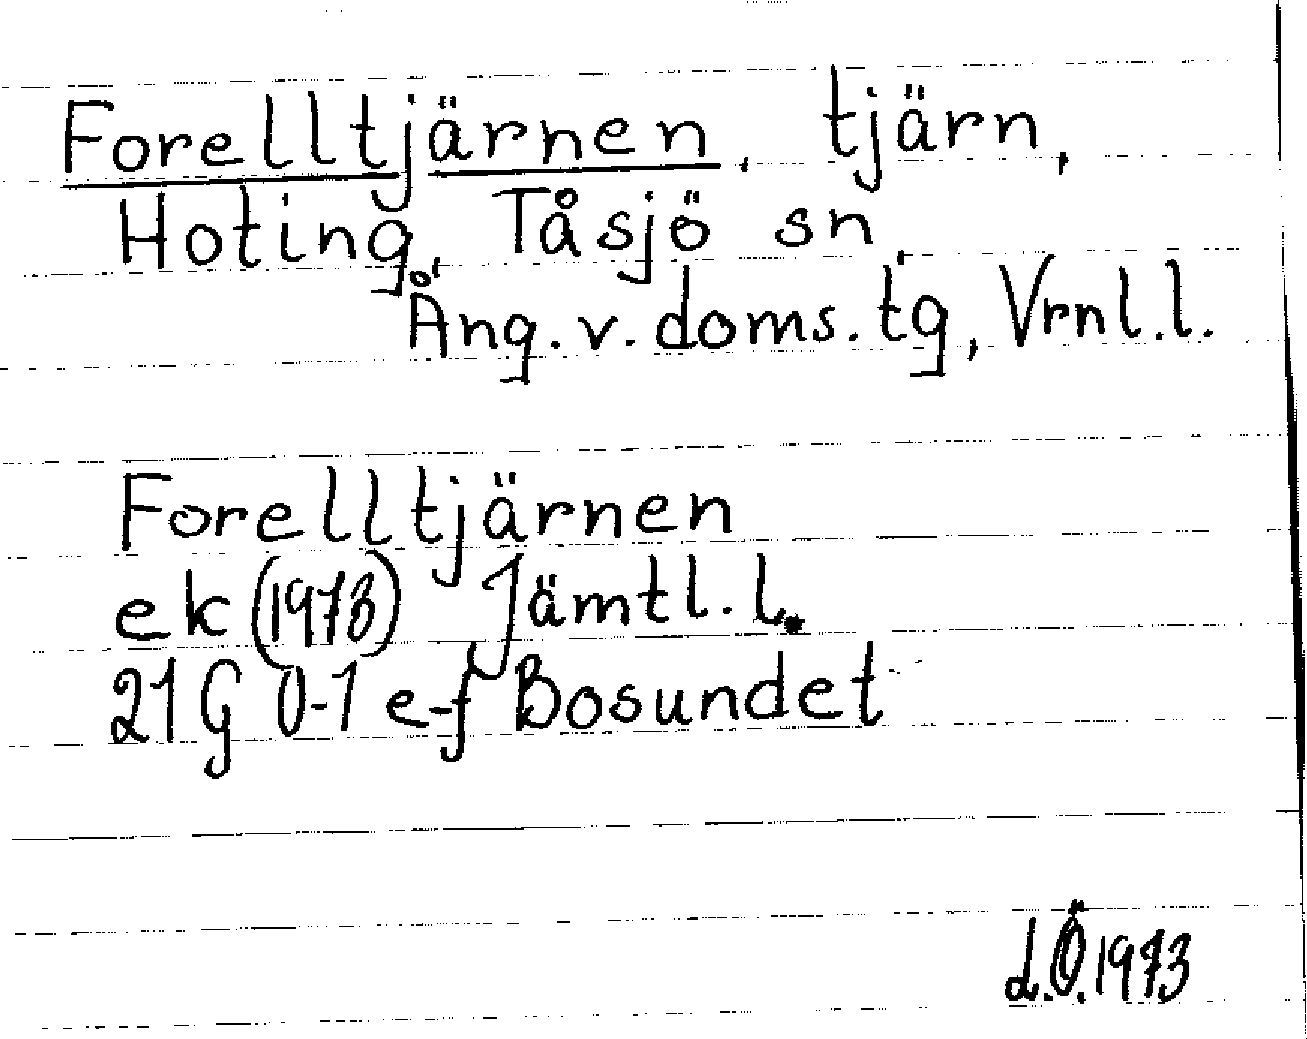 Forelltjärnen, tjärn,
Hoting, Tåsjö sn,
Ång. v. doms. tg, Vrnl. l.
Forelltjärnen
ek (1973) Jämtl. l.
21G 0-1 e-f Bosundet
L.Ö. 1973